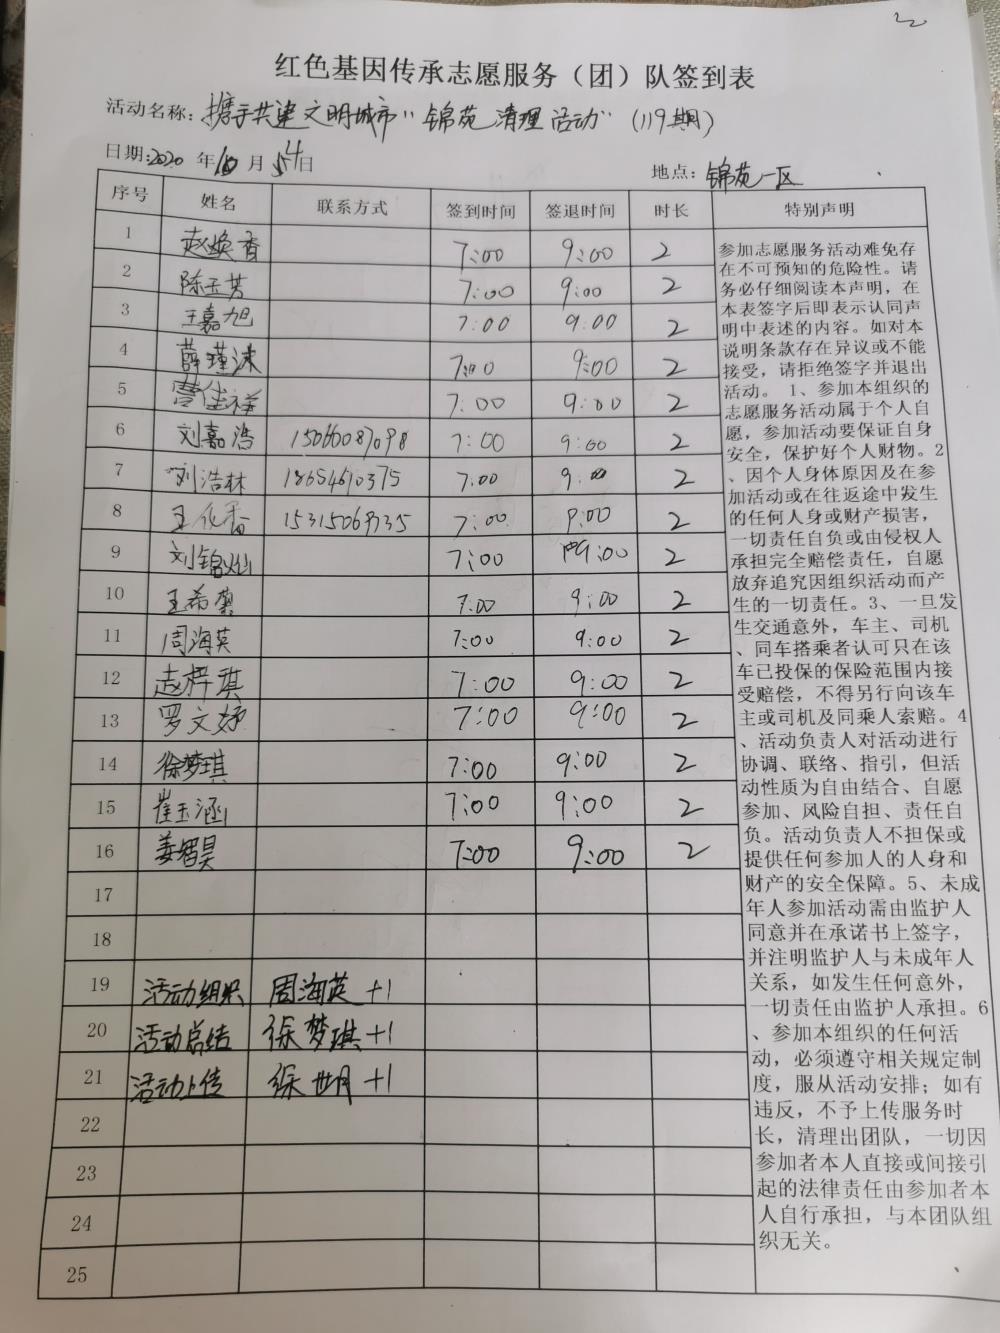 红色基因传承志愿服务（团）队签到表
活动名称：携手共建文明城市"锦苑清理活动"（119期）
日期：2020年10月4日
地点：锦苑一区
序号 姓名 联系方式 签到时间 签退时间 时长 特别声明
1 赵焕香 7:00 9:00 2
2 陈玉芳 7:00 9:00 2
3 王嘉旭 7:00 9:00 2
4 薛瑾涞 7:00 9:00 2
5 曹佳祥 7:00 9:00 2
6 刘嘉浩 15066087098 7:00 9:00 2
7 刘浩林 18654610375 7:00 9:00 2
8 王化香 7:00 9:00 2
9 刘锦灿 7:00 9:00 2
10 王希 7:00 9:00 2
11 周海英 7:00 9:00 2
12 赵梓琪 7:00 9:00 2
13 罗文妤 7:00 9:00 2
14 徐梦琪 7:00 9:00 2
15 崔玉涵 7:00 9:00 2
16 姜智昊 7:00 9:00 2
17
18
19 活动组织 周海英+1
20 活动总结 徐梦琪+1
21 活动上传 徐世月+1
22
23
24
25
参加志愿服务活动难免存
在不可预知的危险性。请
务必仔细阅读本声明，在
本表签字后即表示认同声
明中表述的内容。如对本
说明条款存在异议或不能
接受，请拒绝签字并退出
活动。 1、参加本组织的
志愿服务活动属于个人自
愿，参加活动要保证自身
安全，保护好个人财物。2
、因个人身体原因及在参
加活动或在往返途中发生
的任何人身或财产损害，
一切责任自负或由侵权人
承担完全赔偿责任，自愿
放弃追究因组织活动而产
生的一切责任。3、一旦发
生交通意外，车主、司机
、同车搭乘者认可只在该
车已投保的保险范围内接
受赔偿，不得另行向该车
主或司机及同乘人索赔。4
、活动负责人对活动进行
协调、联络、指引，但活
动性质为自由结合、自愿
参加、风险自担、责任自
负。活动负责人不担保或
提供任何参加人的人身和
财产的安全保障。5、未成
年人参加活动需由监护人
同意并在承诺书上签字，
并注明监护人与未成年人
关系，如发生任何意外，
一切责任由监护人承担。6
、参加本组织的任何活
动，必须遵守相关规定制
度，服从活动安排；如有
违反，不予上传服务时
长，清理出团队，一切因
参加者本人直接或间接引
起的法律责任由参加者本
人自行承担，与本团队组
织无关。